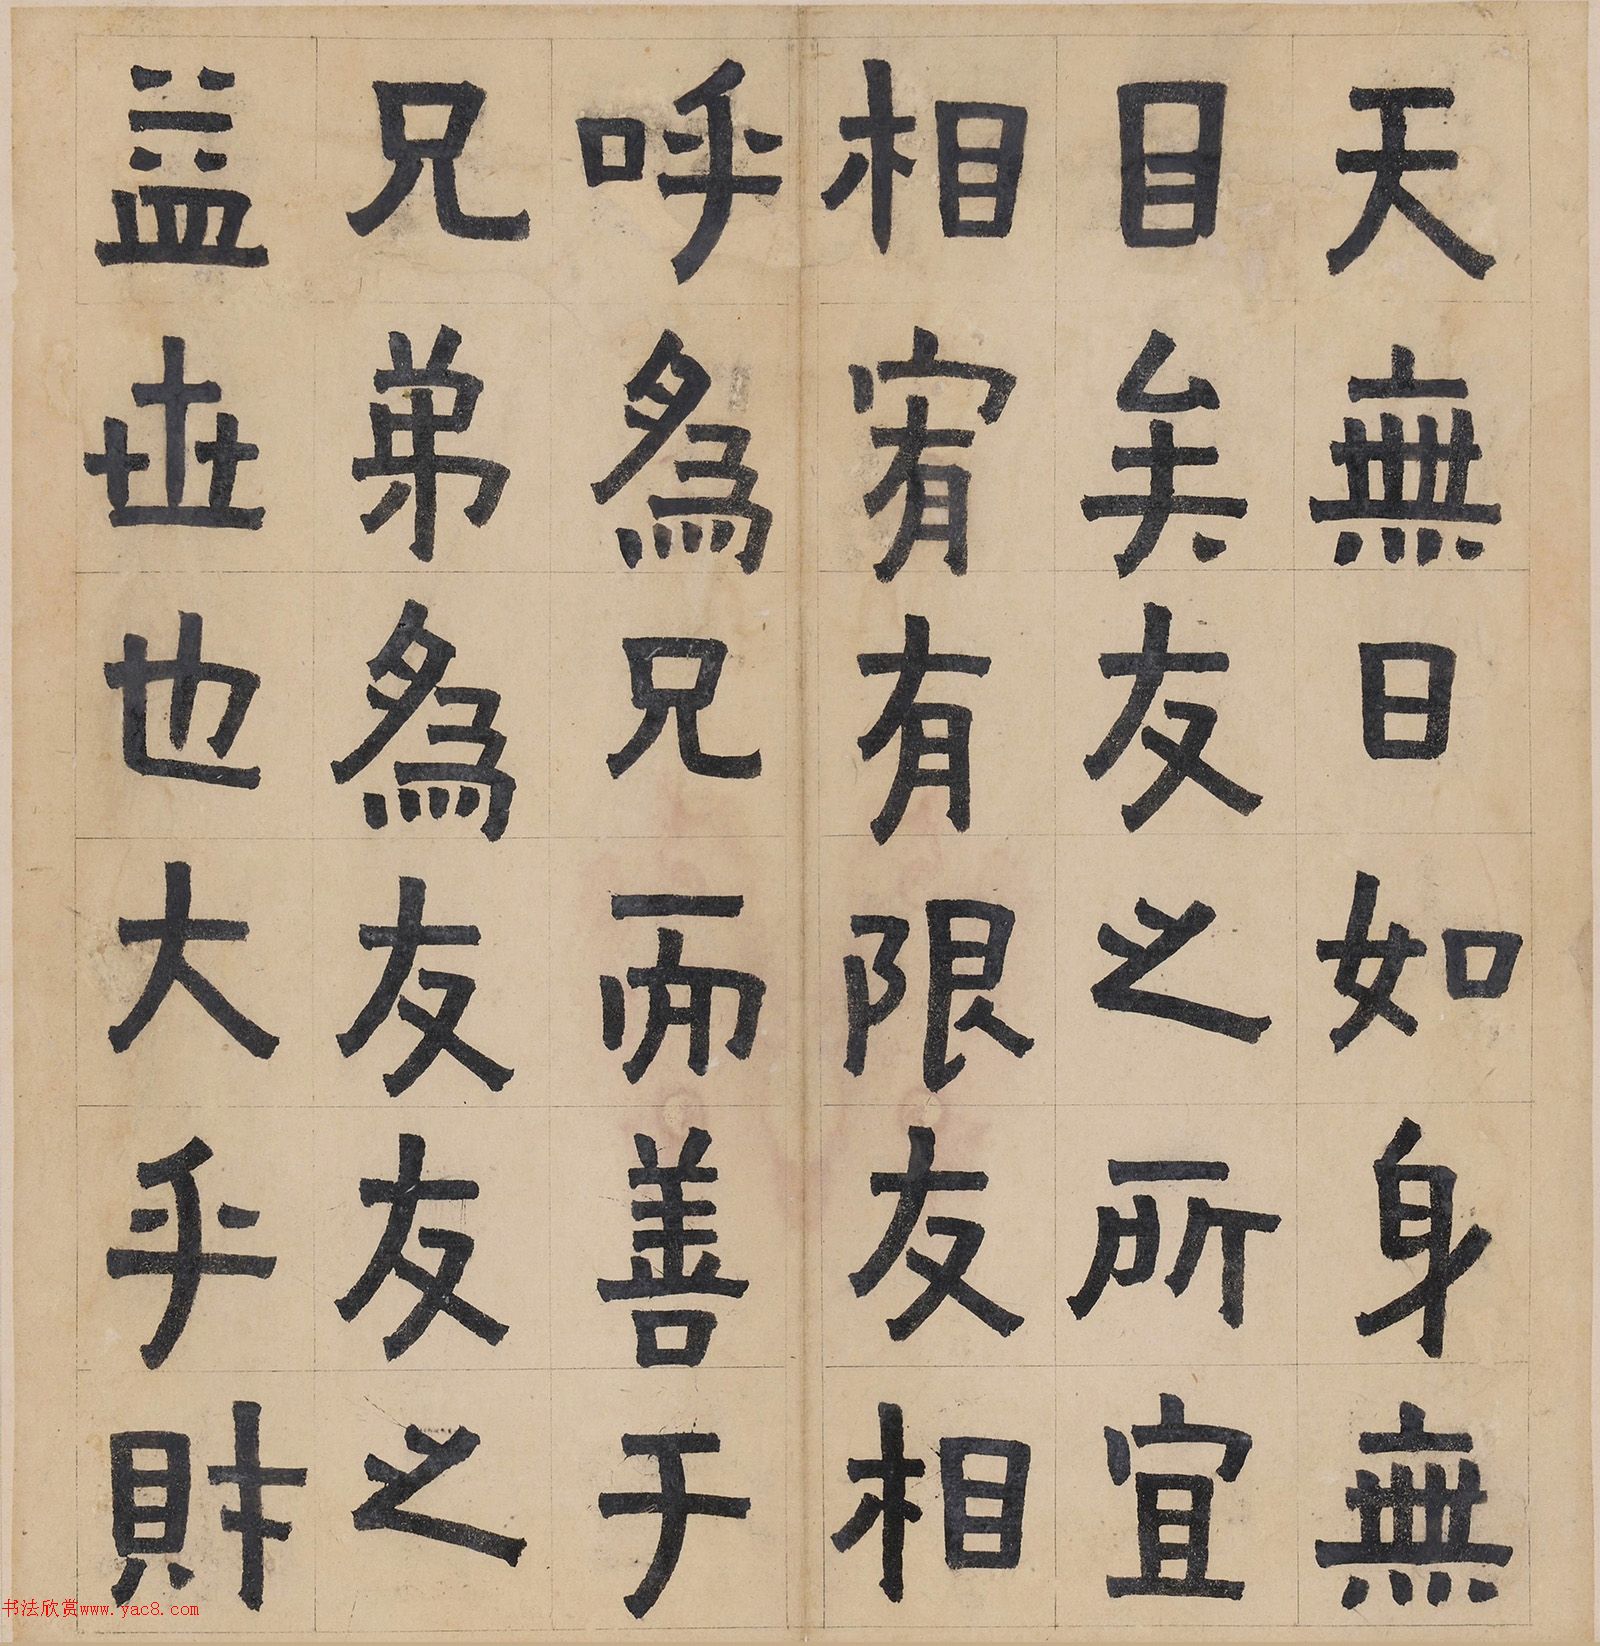 天無日如身無
目矣友之所宜
相宥有限友相
呼為兄而善于
兄弟為友友之
益世也大乎財
书法欣赏www.yac8.com